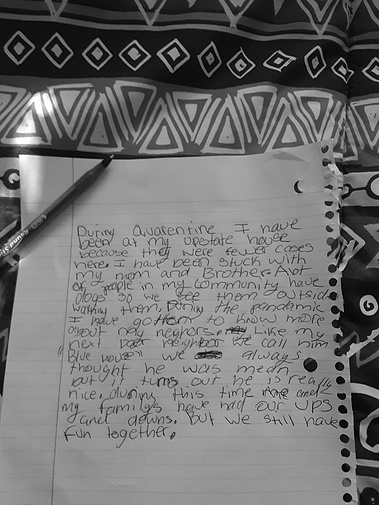 During Quarentine I have
been at my upstate house
because they were fewer cases
here. I have been stuck with
my mom and Brother. Aot
of people in my community have
dogs so we see them outside
walking them. During the pandemic
I have gotten to know more
about my neghors. Like my
next neighbor we call him
Blue we always
thought he was mean
but it turns out he is really
nice. during this time me and
my familys have had our ups
and downs. but we still have
fun together.